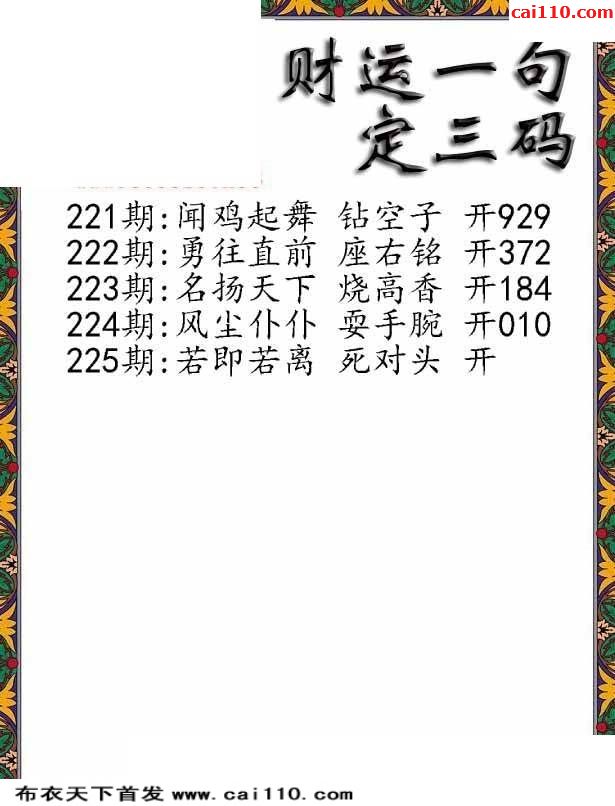 cai110.com
财运一句
定三码
221期:闻鸡起舞 钻空子 开929
222期:勇往直前 座右铭 开372
223期:名扬天下 烧高香 开184
224期:风尘仆仆 耍手腕 开010
225期:若即若离 死对头 开
布衣天下首发 www.cai110.com